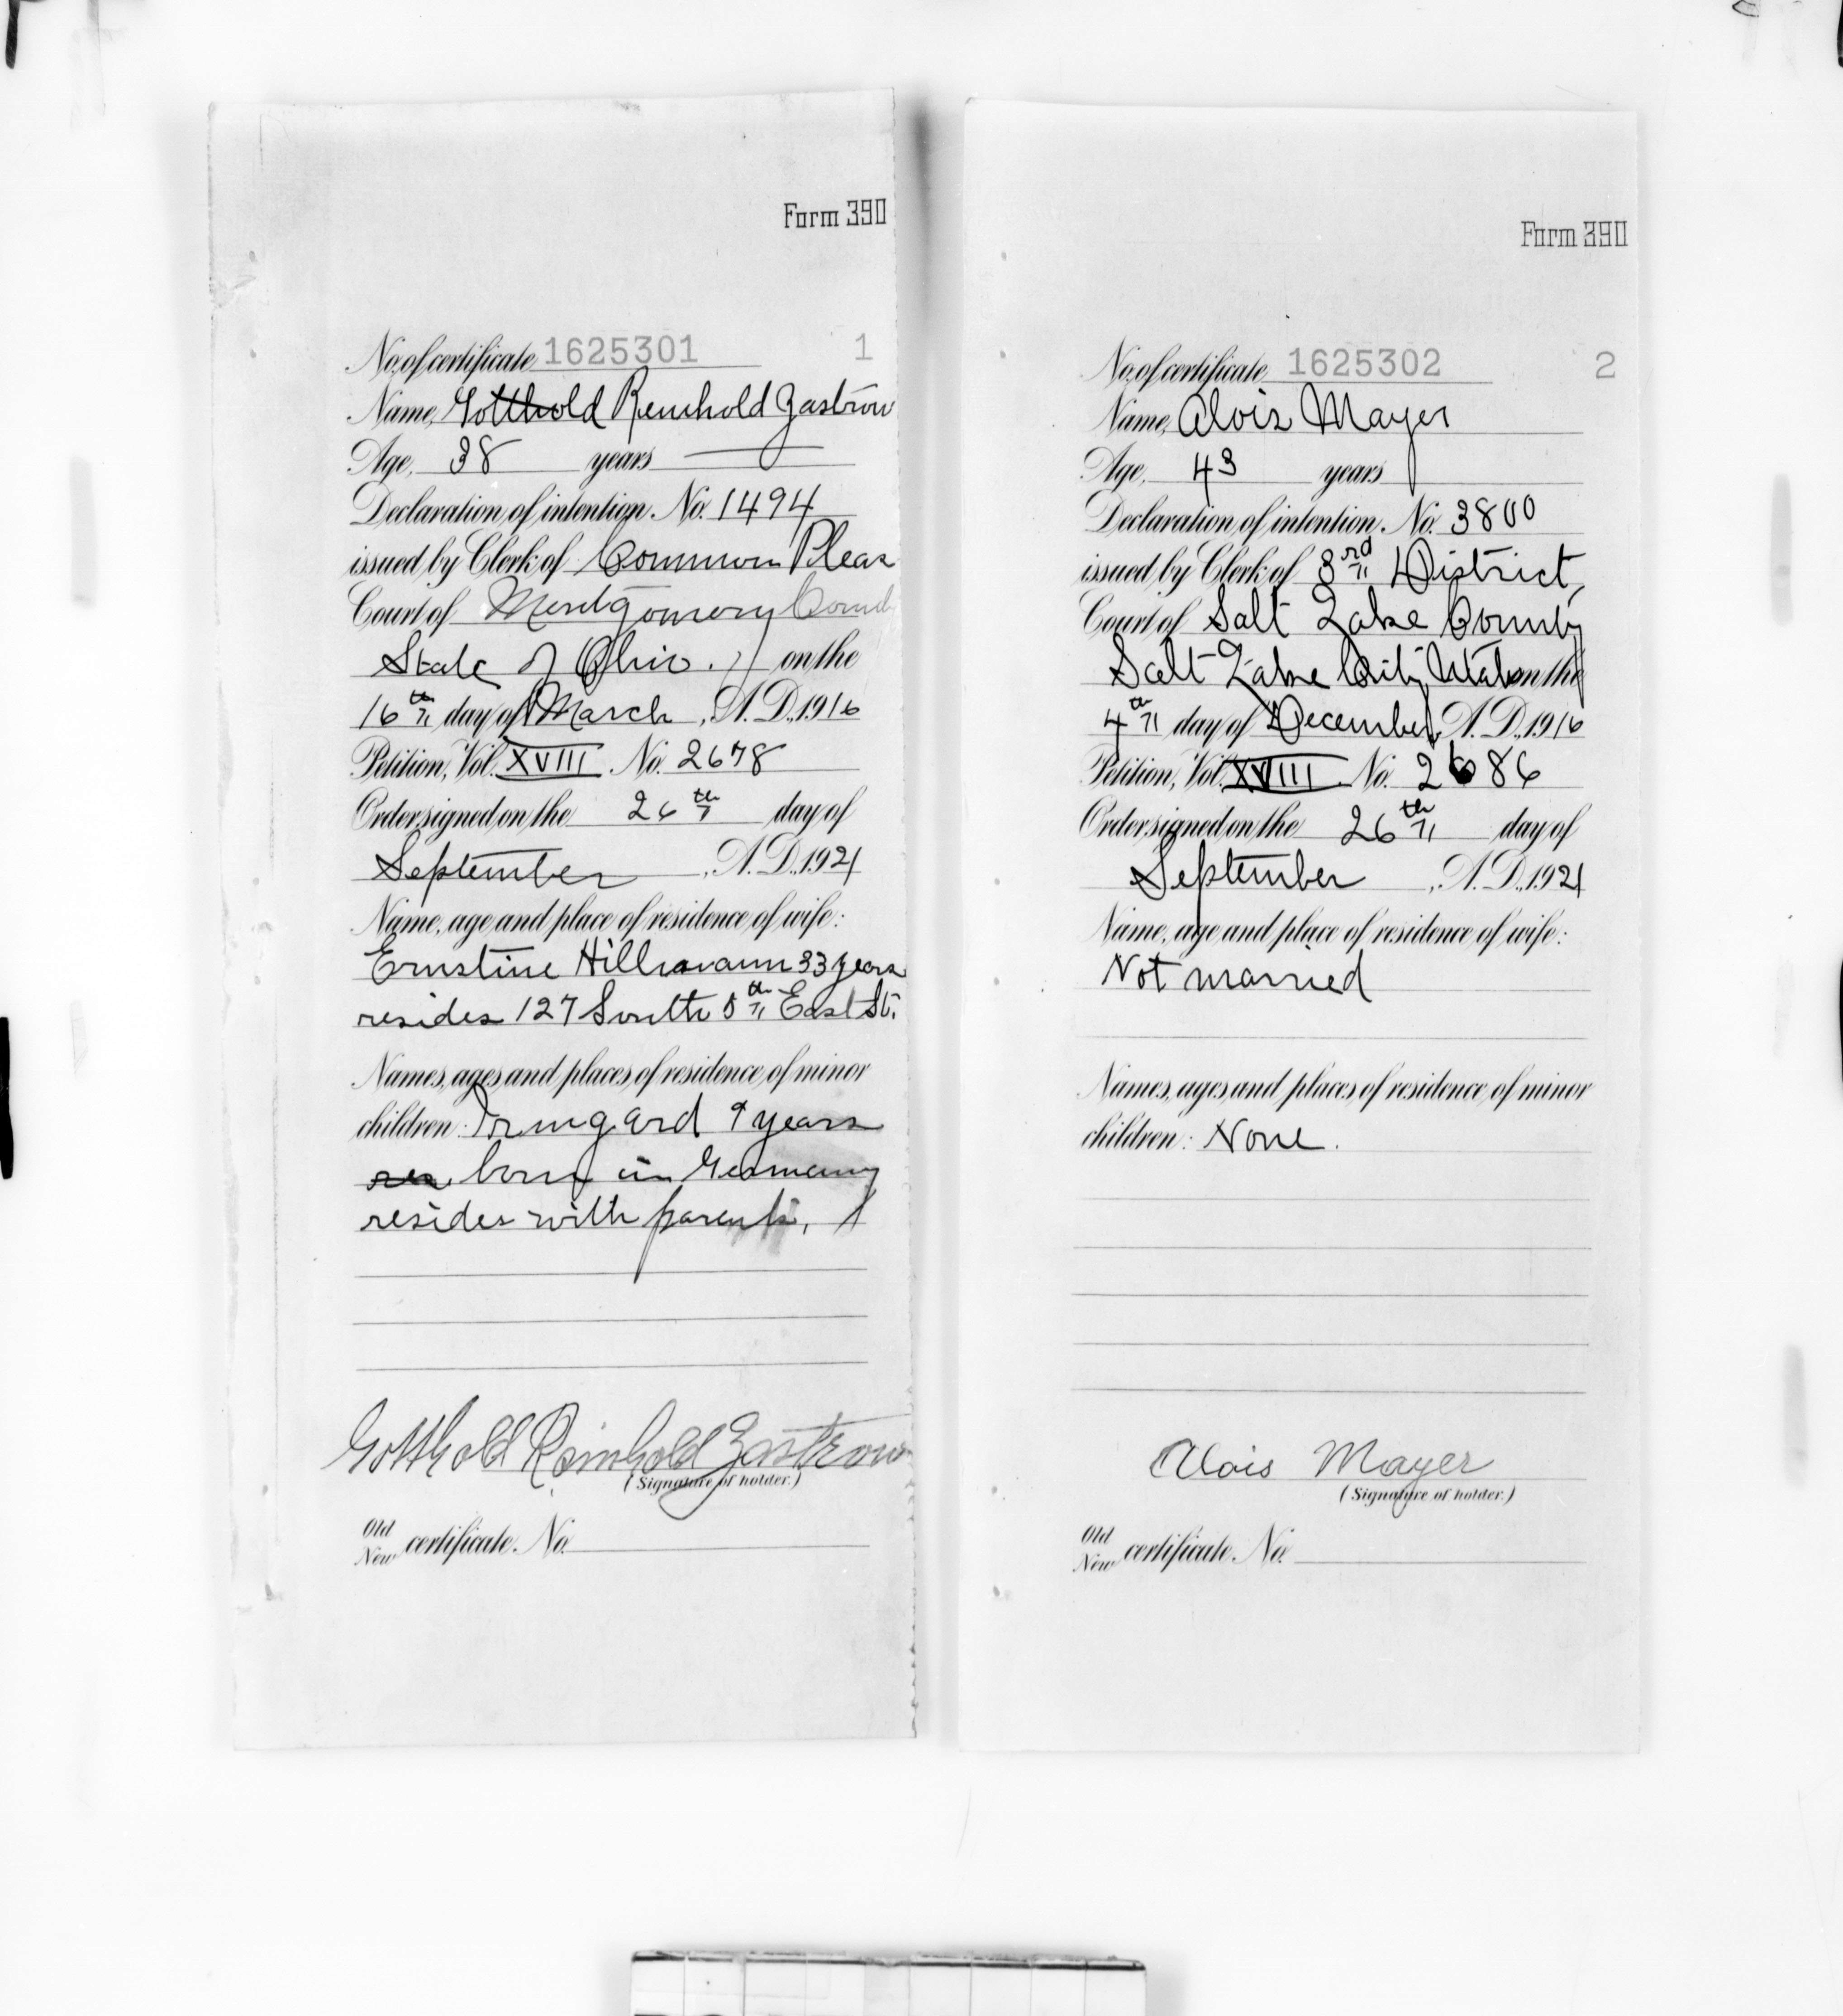 Form 390
No. of certificate 1625301 1
Name, Gotthold Reinhold Zastrow
Age, 38 years
Declaration of intention. No. 1494
issued by Clerk of Common Pleas
Court of Montgomery
State of Ohio. on the
16th day of March, A. D. 1916
Petition, Vol. XVIII No. 2678
Order signed on the 26th day of
September, A. D. 1921
Name, age and place of residence of wife:
Ernstine 33 years
resides 127 South 5th East St.
Names, ages and places of residence of minor
children: Irmgard 9 years
born in Germany
resides with parents,
Gotthold Reinhold Zastrow
(Signature of holder.)
Old
New certificate. No.
Form 390
No. of certificate 1625302 2
Name, Alois Mayer
Age, 43 years
Declaration of intention. No. 3800
issued by Clerk of 3rd District,
Court of Salt Lake County
Salt Lake City, Utah on the
4th day of December, A. D. 1916
Petition, Vol. XVIII No. 2686
Order signed on the 26th day of
September, A. D. 1921
Name, age and place of residence of wife:
Not married
Names, ages and places of residence of minor
children: None.
Alois Mayer
(Signature of holder.)
Old
New certificate. No.